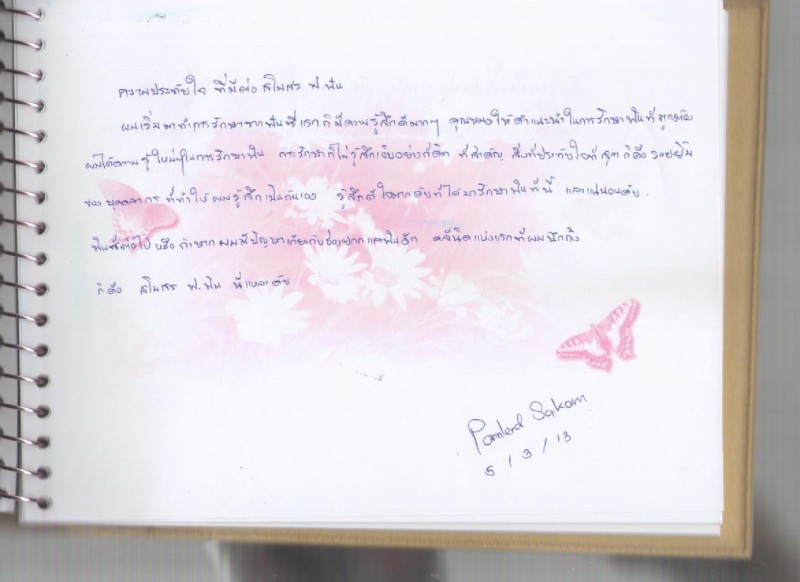 ความประทับใจ ที่มีต่อ สโมสร ฟ.ฟัน
ผมเริ่มมาทำการรักษารากฟันที่แรกก็มีความรู้สึกดีมากๆ คุณหมอให้คำแนะนำในการรักษาฟันที่ถูกต้อง
ผมได้ความรู้ใหม่ๆในการรักษาฟัน การรักษาก็ไม่รู้สึกเจ็บอย่างที่คิด ที่สำคัญ สิ่งที่ประทับใจที่สุดก็คือ รอยยิ้ม
ของ บุคลากร ที่ทำให้ ผมรู้สึกเป็นกันเอง รู้สึกดีใจมากครับที่ได้มารักษาฟันที่นี้ และแน่นอนครับ.
ฟันซี่ต่อไป หรือ ถ้าหาก ผมมีปัญหาเกี่ยวกับช่องปากและฟันอีก คลีนิคแห่งแรกที่ผมนึกถึง
ก็คือ สโมสร ฟ.ฟัน นี่แหละครับ
Sakorn
5 / 3 / 13